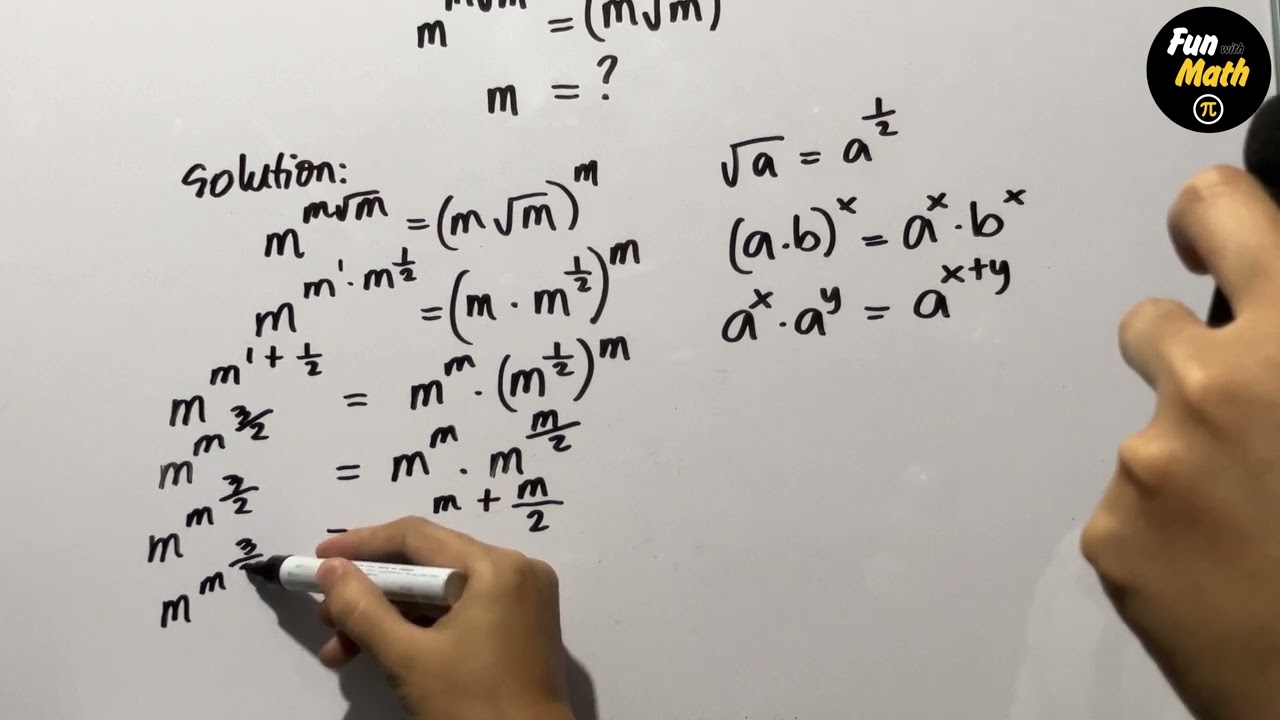 m^(m√m) = (m√m)
m = ?
Solution:
m^(m√m) = (m√m)^m
m^(m¹·m^(1/2)) = (m · m^(1/2))^m
m^(m^(1 + 1/2)) = m^m · (m^(1/2))^m
m^(m^(3/2)) = m^m · m^(m/2)
m^(m^(3/2)) = m + m/2
m^(m^3
√a = a^(1/2)
(a·b)^x = a^x · b^x
a^x · a^y = a^(x+y)
Fun with
Math
π